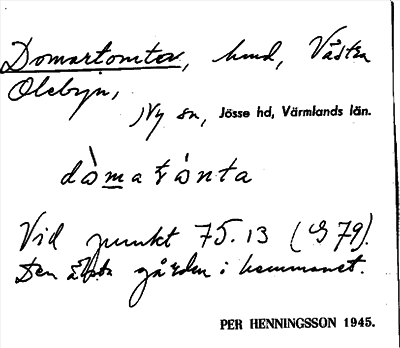 Domartomten, hmd, Västra
Olebyn,
Ny sn, Jösse hd, Värmlands län.
dòmatònta
Vid punkt 75.13 (G 79).
Den älsta gården i hemmanet.
PER HENNINGSSON 1945.